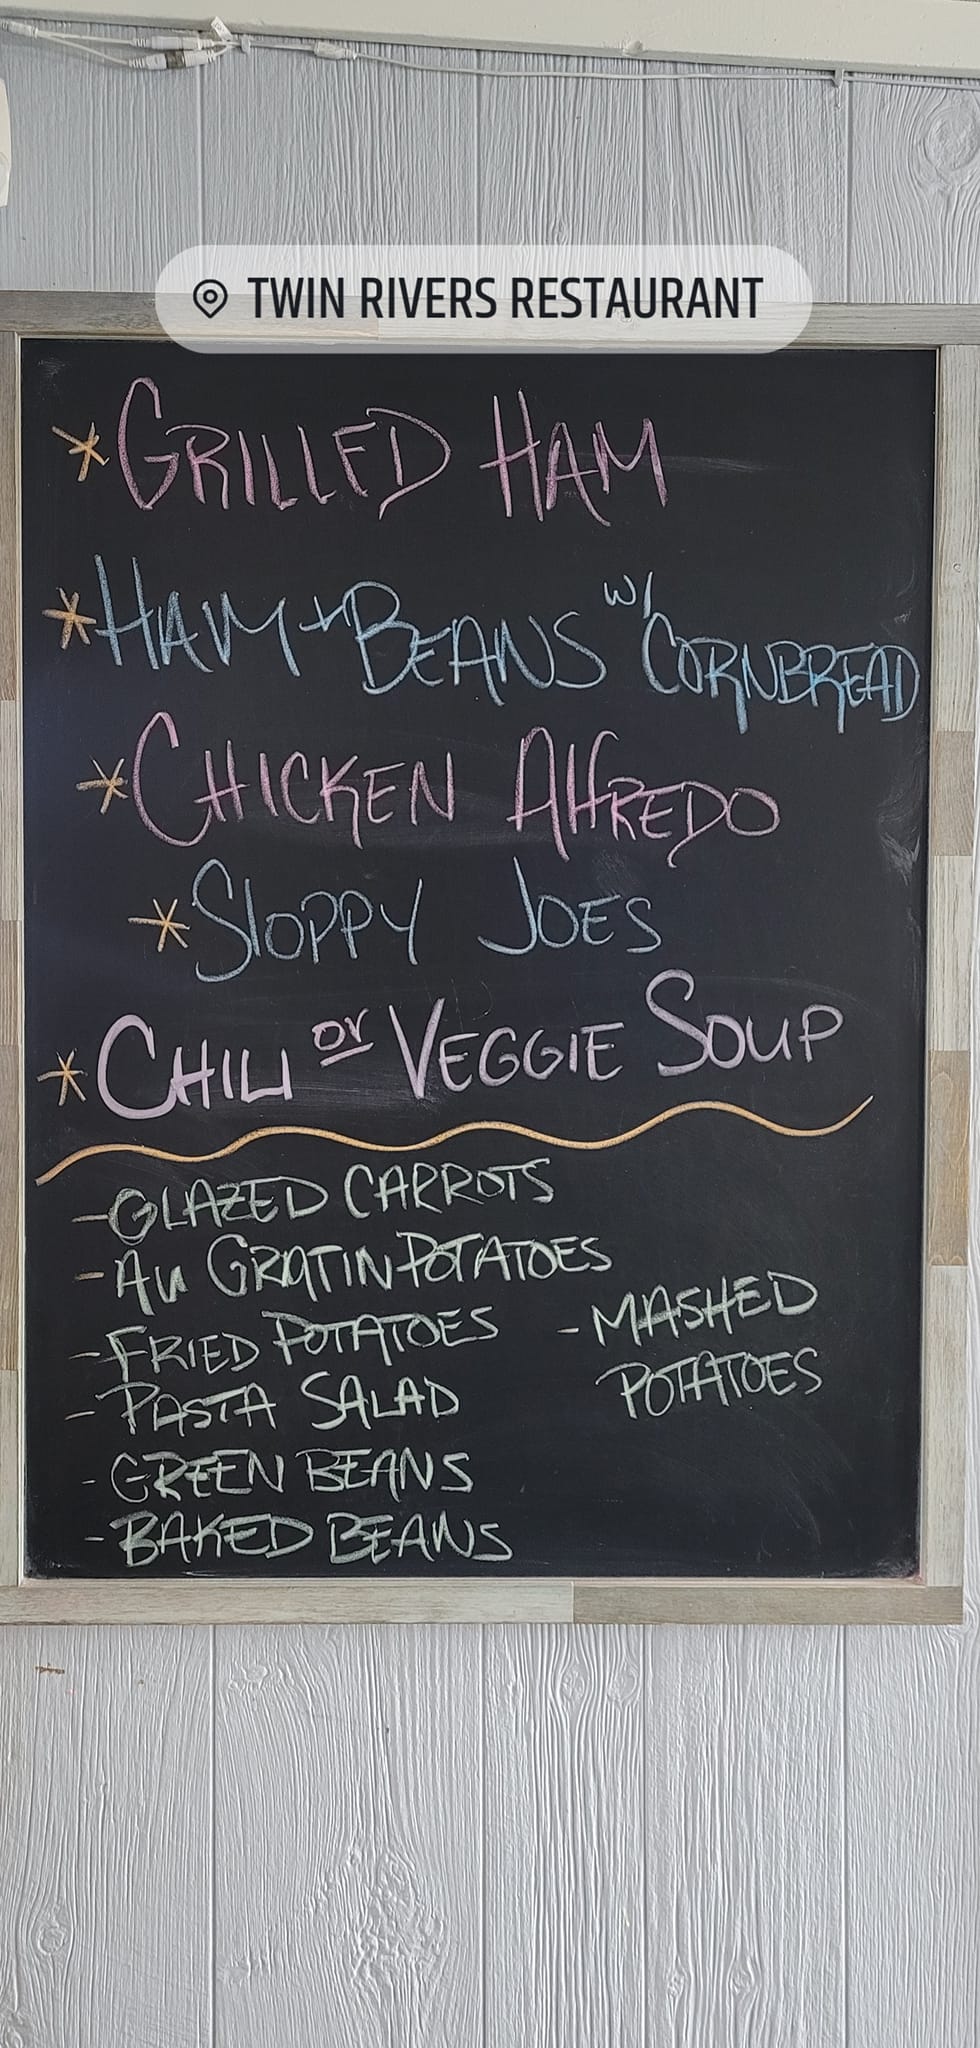 TWIN RIVERS RESTAURANT
* GRILLED HAM
* HAM + BEANS w/ CORNBREAD
* CHICKEN AlfREDO
* SlOPPY JOES
* CHILI or VEGGIE SOUP
- GLAZED CARROTS
- Au GRATIN POTATOES
- FRIED POTATOES
- PASTA SALAD
- GREEN BEANS
- BAKED BEANS
- MASHED
POTATOES